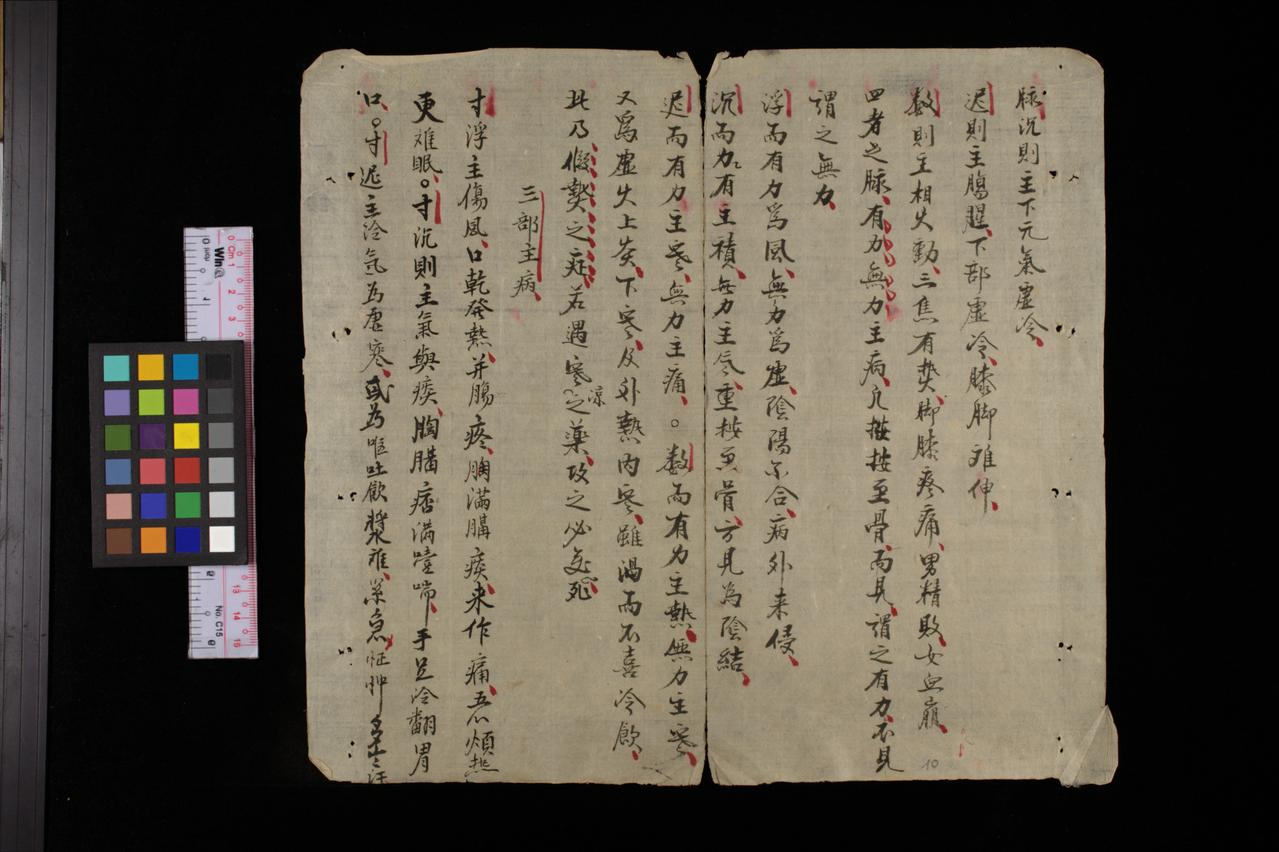 脉沉則主下元氣虛冷
迟則主腸腥下部虛冷膝脚难伸
数則主相火動三焦有热脚膝疼痛男精敗女血崩
四者之脉有力無力主病凡按至骨而見謂之有力不見
謂之無力
浮而有力為風無力為虛陰陽不合病外来侵
沉而力有主積無力主氣重按至骨方見為陰結
迟而有力主寒無力主痛。数而有力主熱無力主寒
又爲虛火上炎下寒及外熱内寒雖渴而不喜冷飲
此乃假熱之症若遇寒凉之藥攻之必死
三部主病
寸浮主傷風口乾發熱并腸疼胸滿膈痰来作痛五心煩热
更难眠。寸沉則主氣與痰胸膈痞满噎喘手足冷翻胃
口。寸迟主冷氣為虛寒或為嘔吐飲漿难氣急怔忡多汗
10
Cm 1
2
3
13
14
15
No. C15